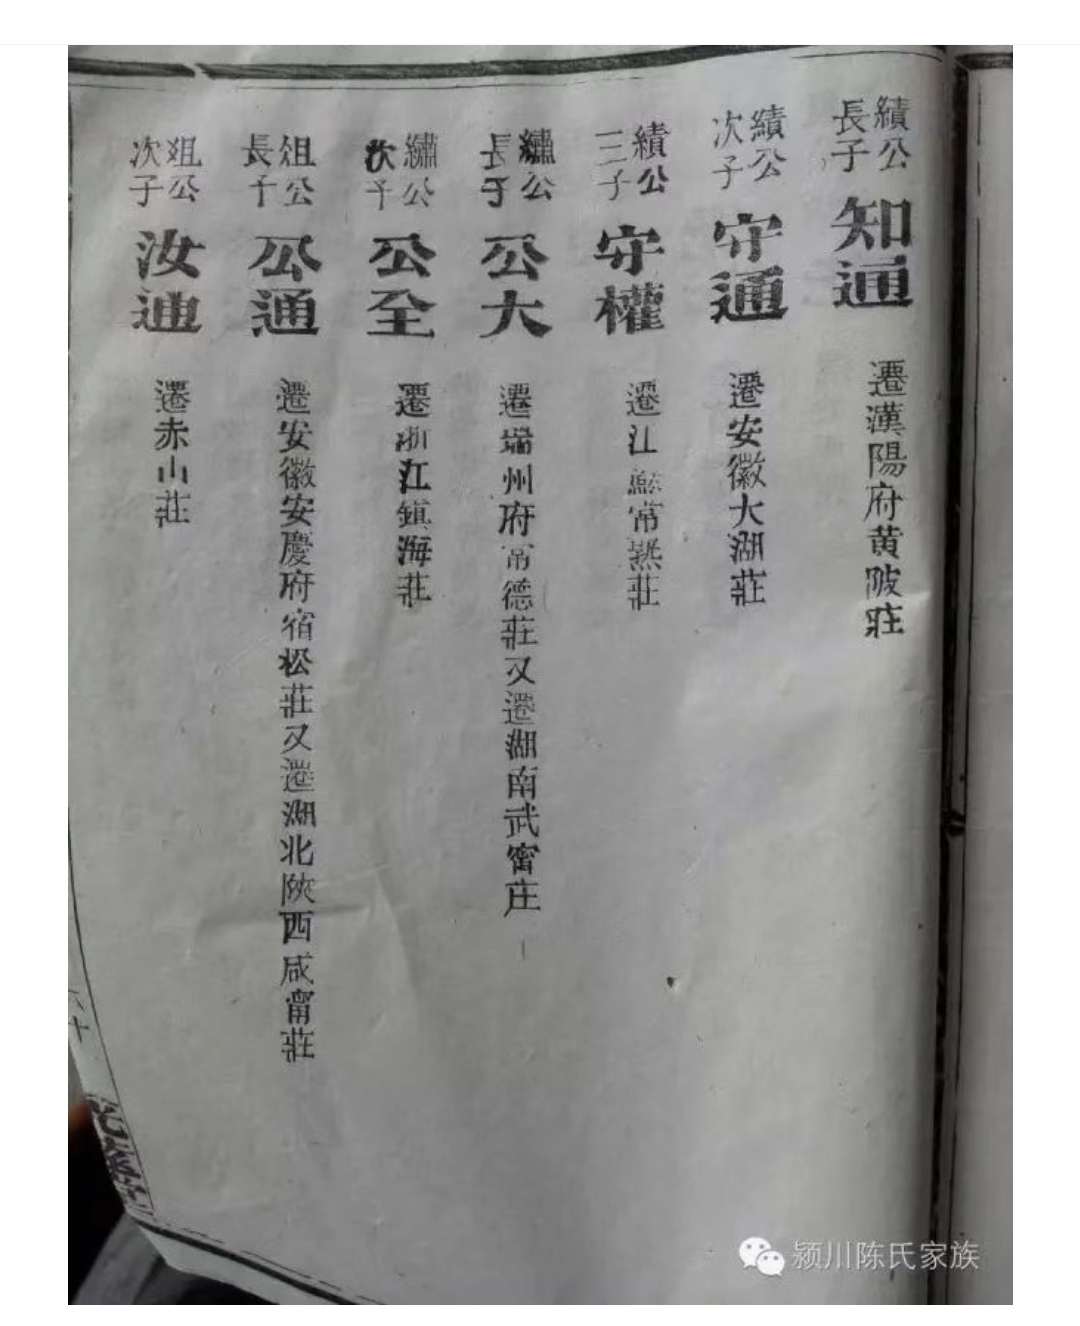 績公長子 知通 遷漢陽府黄陂莊
績公次子 守通 遷安徽大湖莊
績公三子 守權 遷江蘇常熟莊
繡公長子 公大 遷瑞州府常德莊又遷湖南武甯庄
繡公次子 公全 遷浙江鎮海莊
俎公長子 公通 遷安徽安慶府宿松莊又遷湖北陝西咸甯莊
俎公次子 汝迪 遷赤山莊
六十
颍川陈氏家族